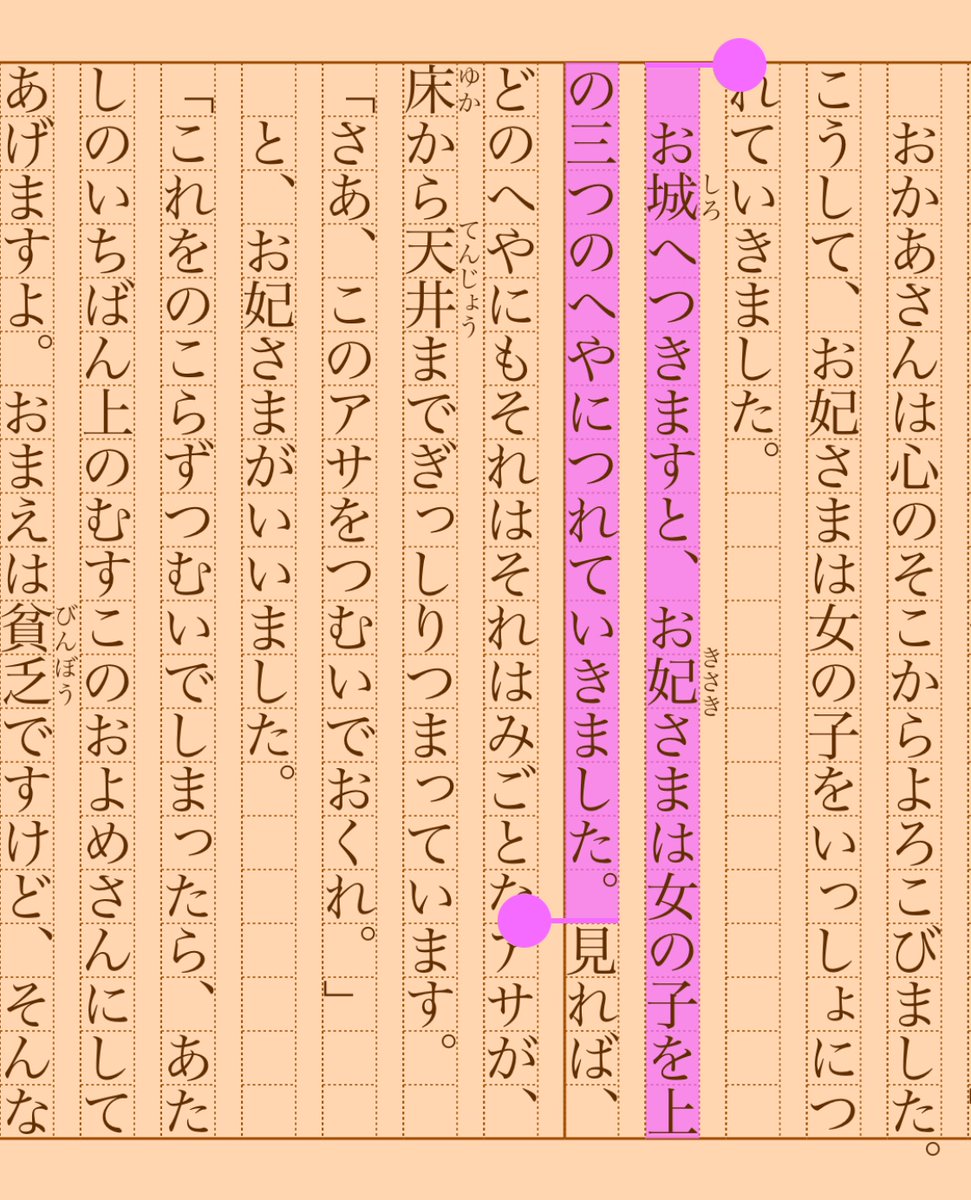 おかあさんは心のそこからよろこびました。
こうして、お妃さまは女の子をいっしょにつ
れていきました。
お城へつきますと、お妃さまは女の子を上
の三つのへやにつれていきました。見れば、
どのへやにもそれはそれはみごとなアサが、
床から天井までぎっしりつまっています。
「さあ、このアサをつむいでおくれ。」
と、お妃さまがいいました。
「これをのこらずつむいでしまったら、あた
しのいちばん上のむすこのおよめさんにして
あげますよ。おまえは貧乏ですけど、そんな